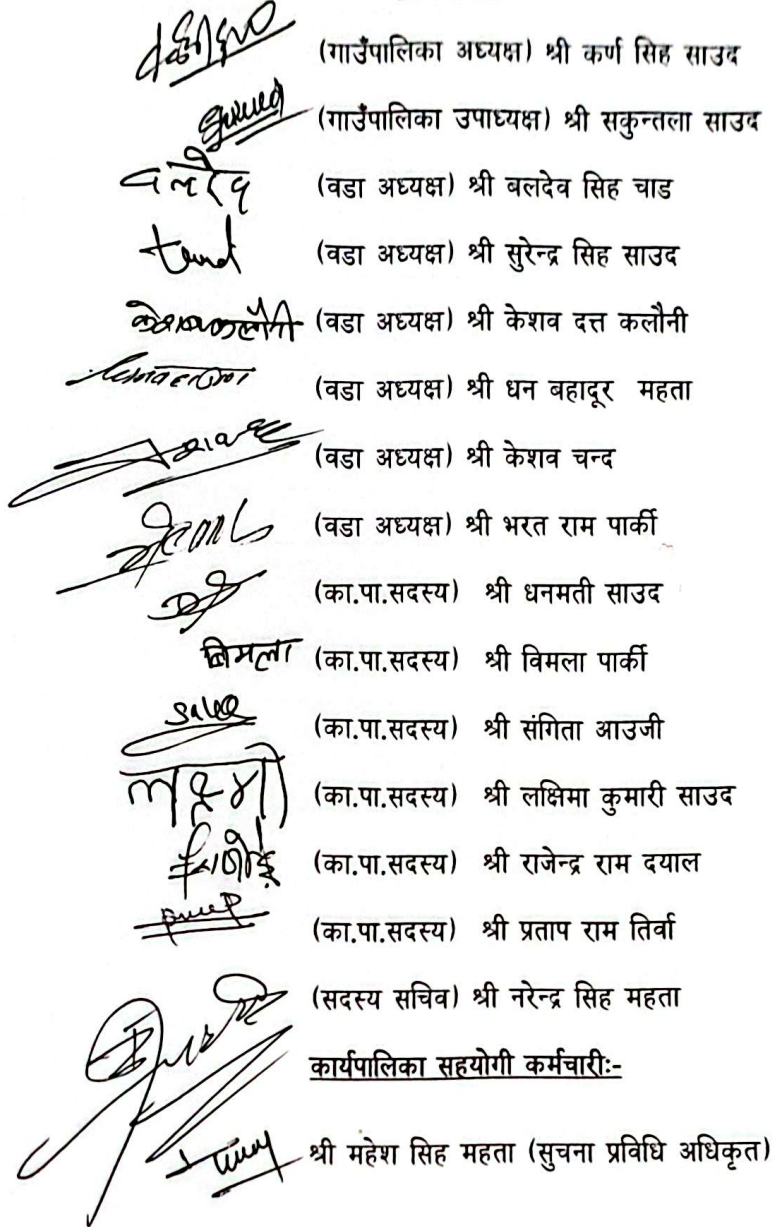 (गाउँपालिका अध्यक्ष) श्री कर्ण सिह साउद
(गाउँपालिका उपाध्यक्ष) श्री सकुन्तला साउद
(वडा अध्यक्ष) श्री बलदेव सिह चाड
(वडा अध्यक्ष) श्री सुरेन्द्र सिह साउद
केशव कलौनी (वडा अध्यक्ष) श्री केशव दत्त कलौनी
(वडा अध्यक्ष) श्री धन बहादूर महता
(वडा अध्यक्ष) श्री केशव चन्द
(वडा अध्यक्ष) श्री भरत राम पार्की
(का.पा.सदस्य) श्री धनमती साउद
बिमला (का.पा.सदस्य) श्री विमला पार्की
(का.पा.सदस्य) श्री संगिता आउजी
लक्ष्मी (का.पा.सदस्य) श्री लक्षिमा कुमारी साउद
(का.पा.सदस्य) श्री राजेन्द्र राम दयाल
(का.पा.सदस्य) श्री प्रताप राम तिर्वा
(सदस्य सचिव) श्री नरेन्द्र सिह महता
कार्यपालिका सहयोगी कर्मचारीः-
श्री महेश सिह महता (सुचना प्रविधि अधिकृत)